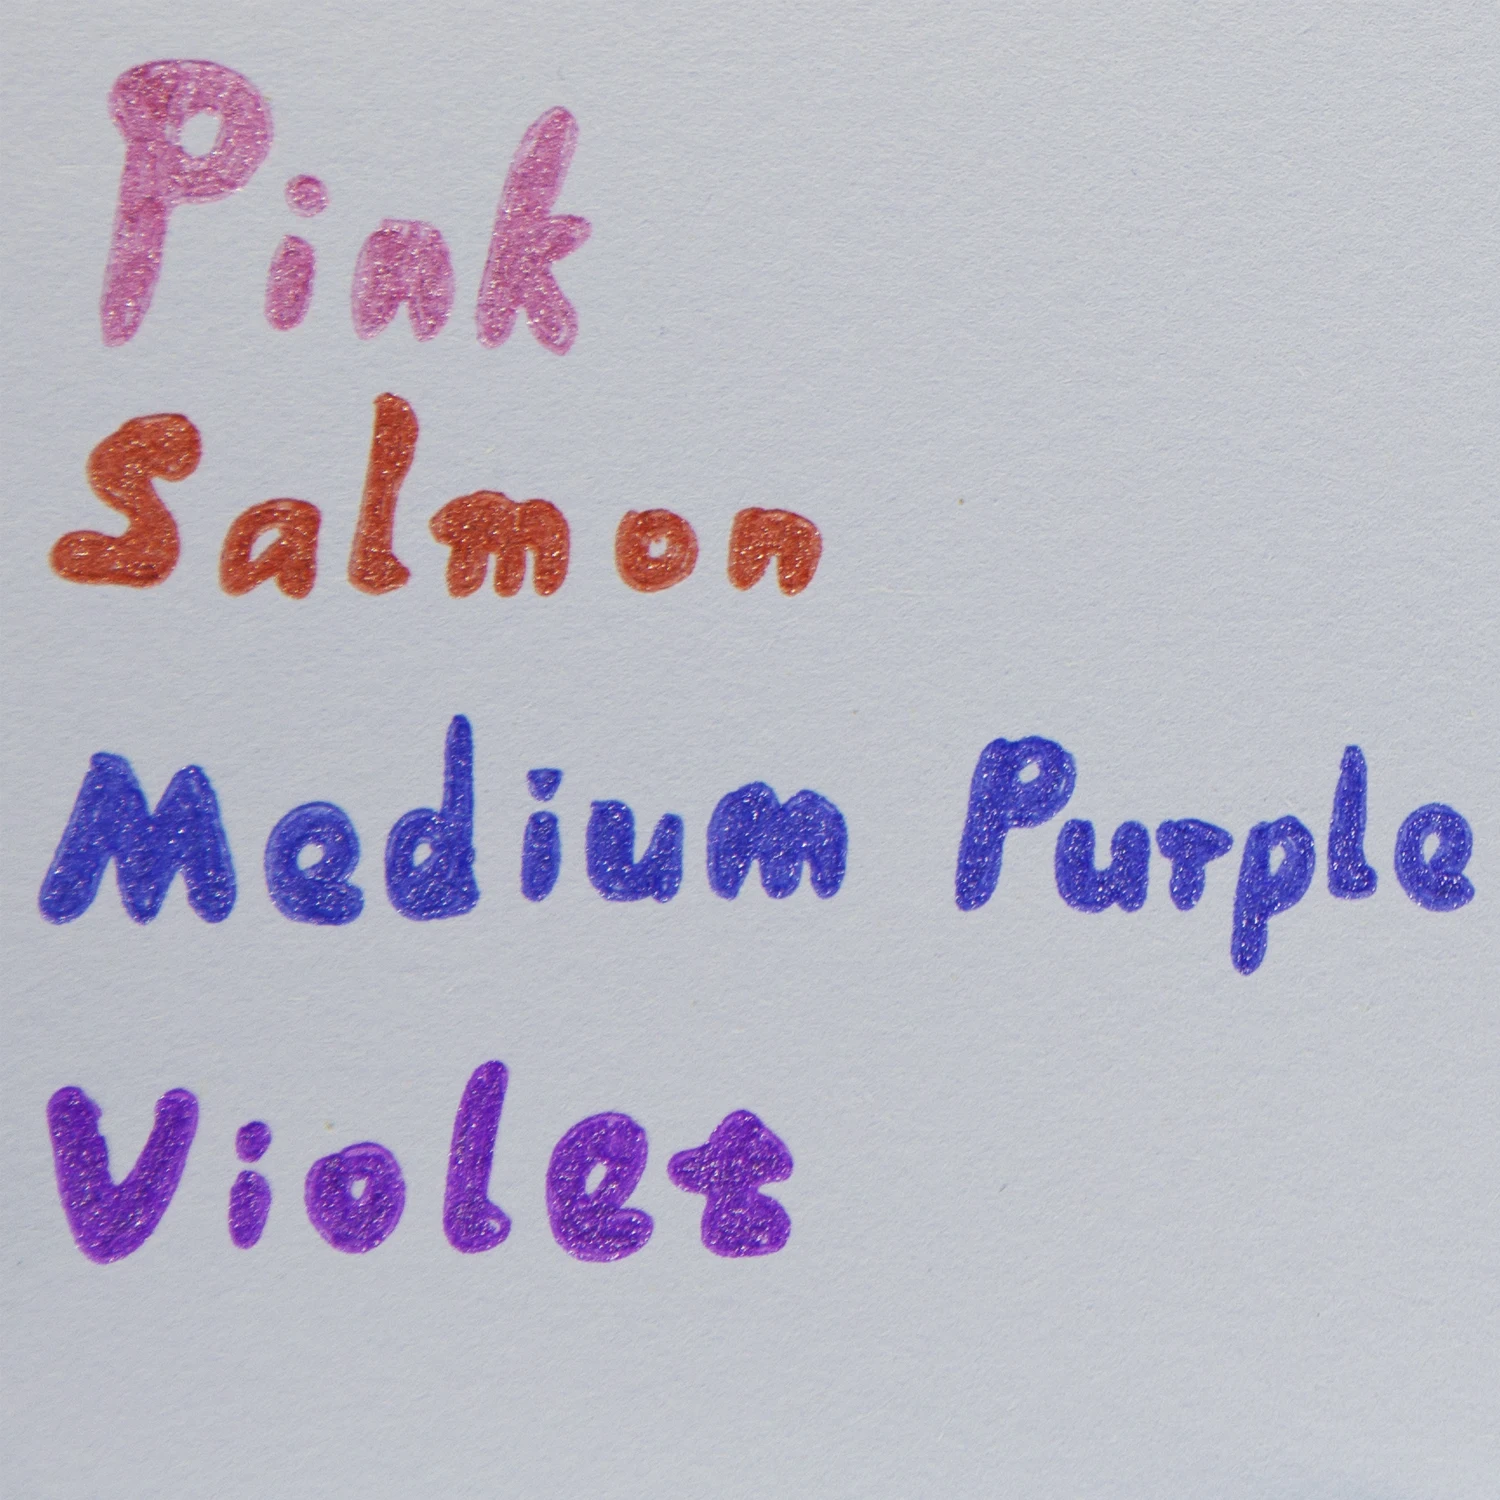 Pink
Salmon
Medium Purple
Violet